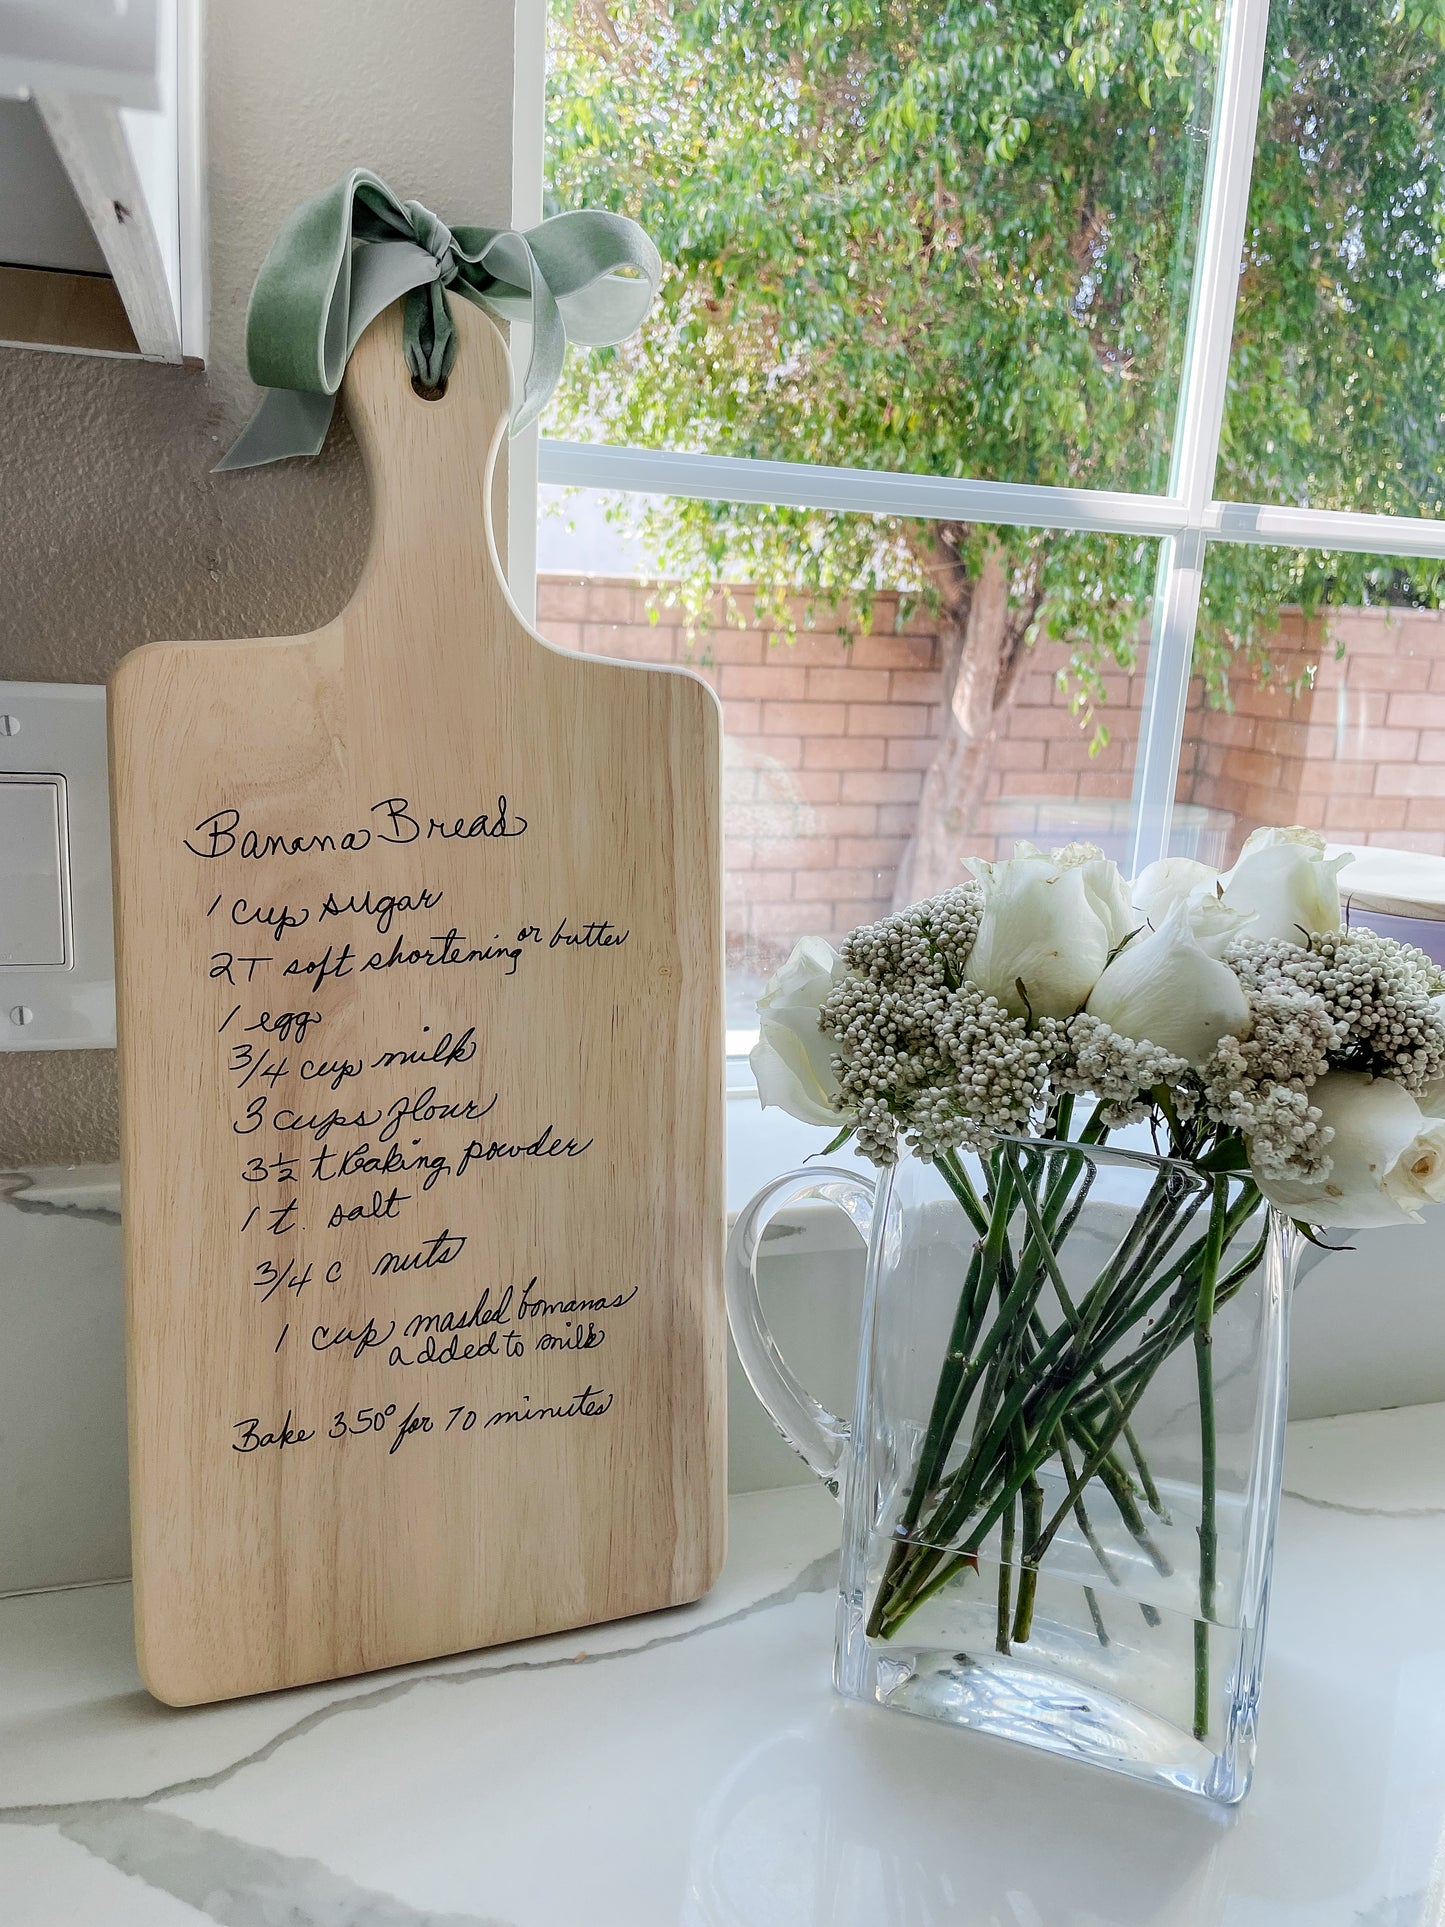 Banana Bread
1 cup sugar
2T soft shortening or butter
1 egg
3/4 cup milk
3 cups flour
3½ t baking powder
1 t. salt
3/4 c nuts
1 cup mashed bananas
added to milk
Bake 350° for 70 minutes